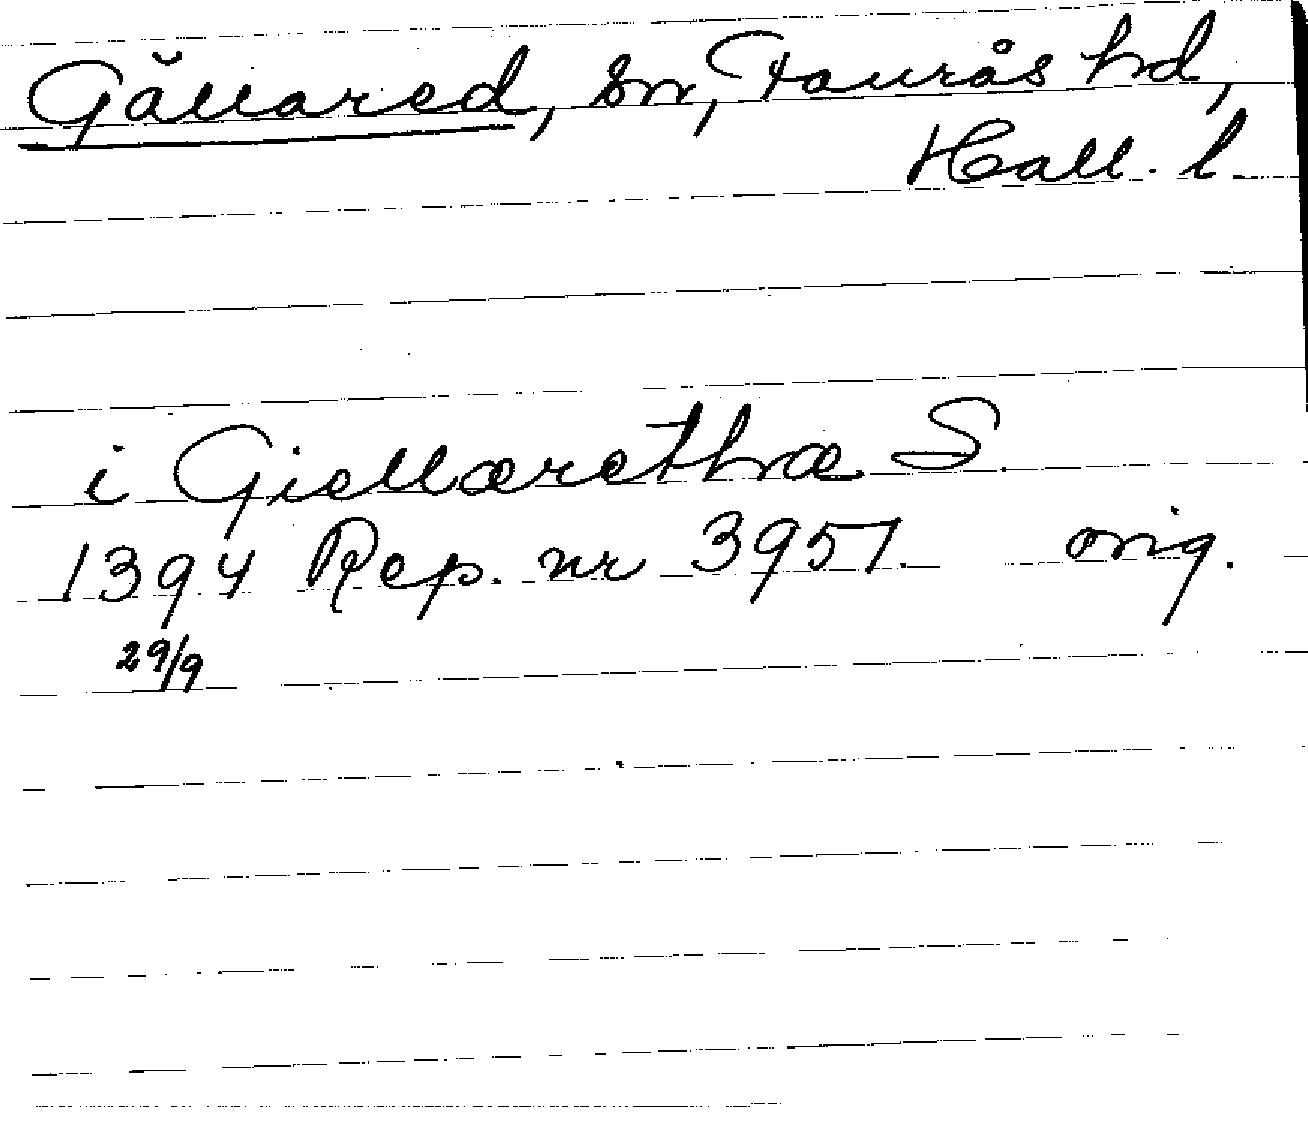 Gällared, sn, Faurås hd,
Hall. l
i Giellærethæ S
1394 Rep. nr 3957. orig.
29/9